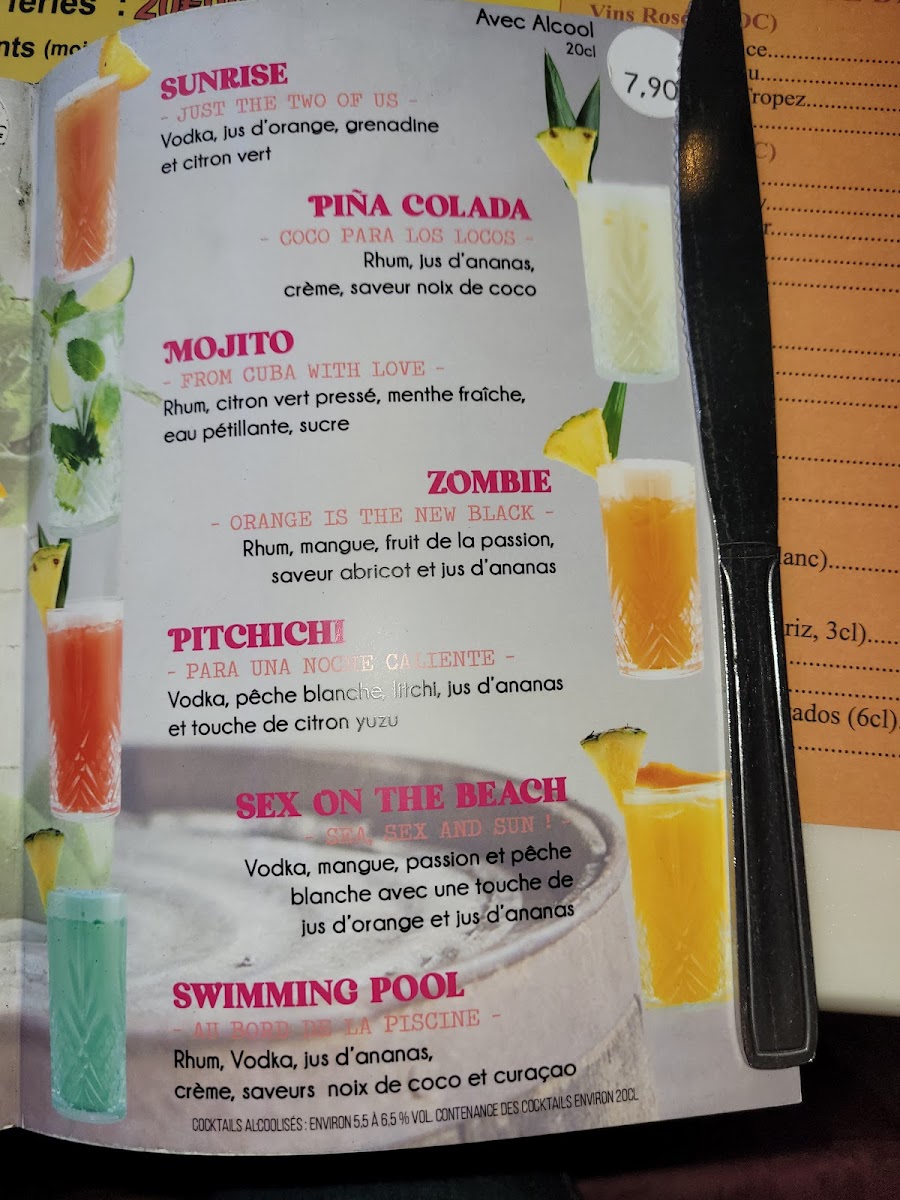 nts (moi
Avec Alcool
20cl
7,90
SUNRISE
- JUST THE TWO OF US -
Vodka, jus d'orange, grenadine
et citron vert
PIÑA COLADA
- COCO PARA LOS LOCOS -
Rhum, jus d'ananas,
crème, saveur noix de coco
MOJITO
- FROM CUBA WITH LOVE -
Rhum, citron vert pressé, menthe fraîche,
eau pétillante, sucre
ZOMBIE
- ORANGE IS THE NEW BLACK -
Rhum, mangue, fruit de la passion,
saveur abricot et jus d'ananas
PITCHICHI
- PARA UNA NOCHE CALIENTE -
Vodka, pêche blanche, litchi, jus d'ananas
et touche de citron yuzu
SEX ON THE BEACH
- SEA, SEX AND SUN ! -
Vodka, mangue, passion et pêche
blanche avec une touche de
jus d'orange et jus d'ananas
SWIMMING POOL
- AU BORD DE LA PISCINE -
Rhum, Vodka, jus d'ananas,
crème, saveurs noix de coco et curaçao
COCKTAILS ALCOOLISÉS : ENVIRON 5,5 À 6,5 % VOL. CONTENANCE DES COCKTAILS ENVIRON 20CL
Vins Ros
ce..........
Tropez..........
lanc)..........
riz, 3cl)......
ados (6cl)